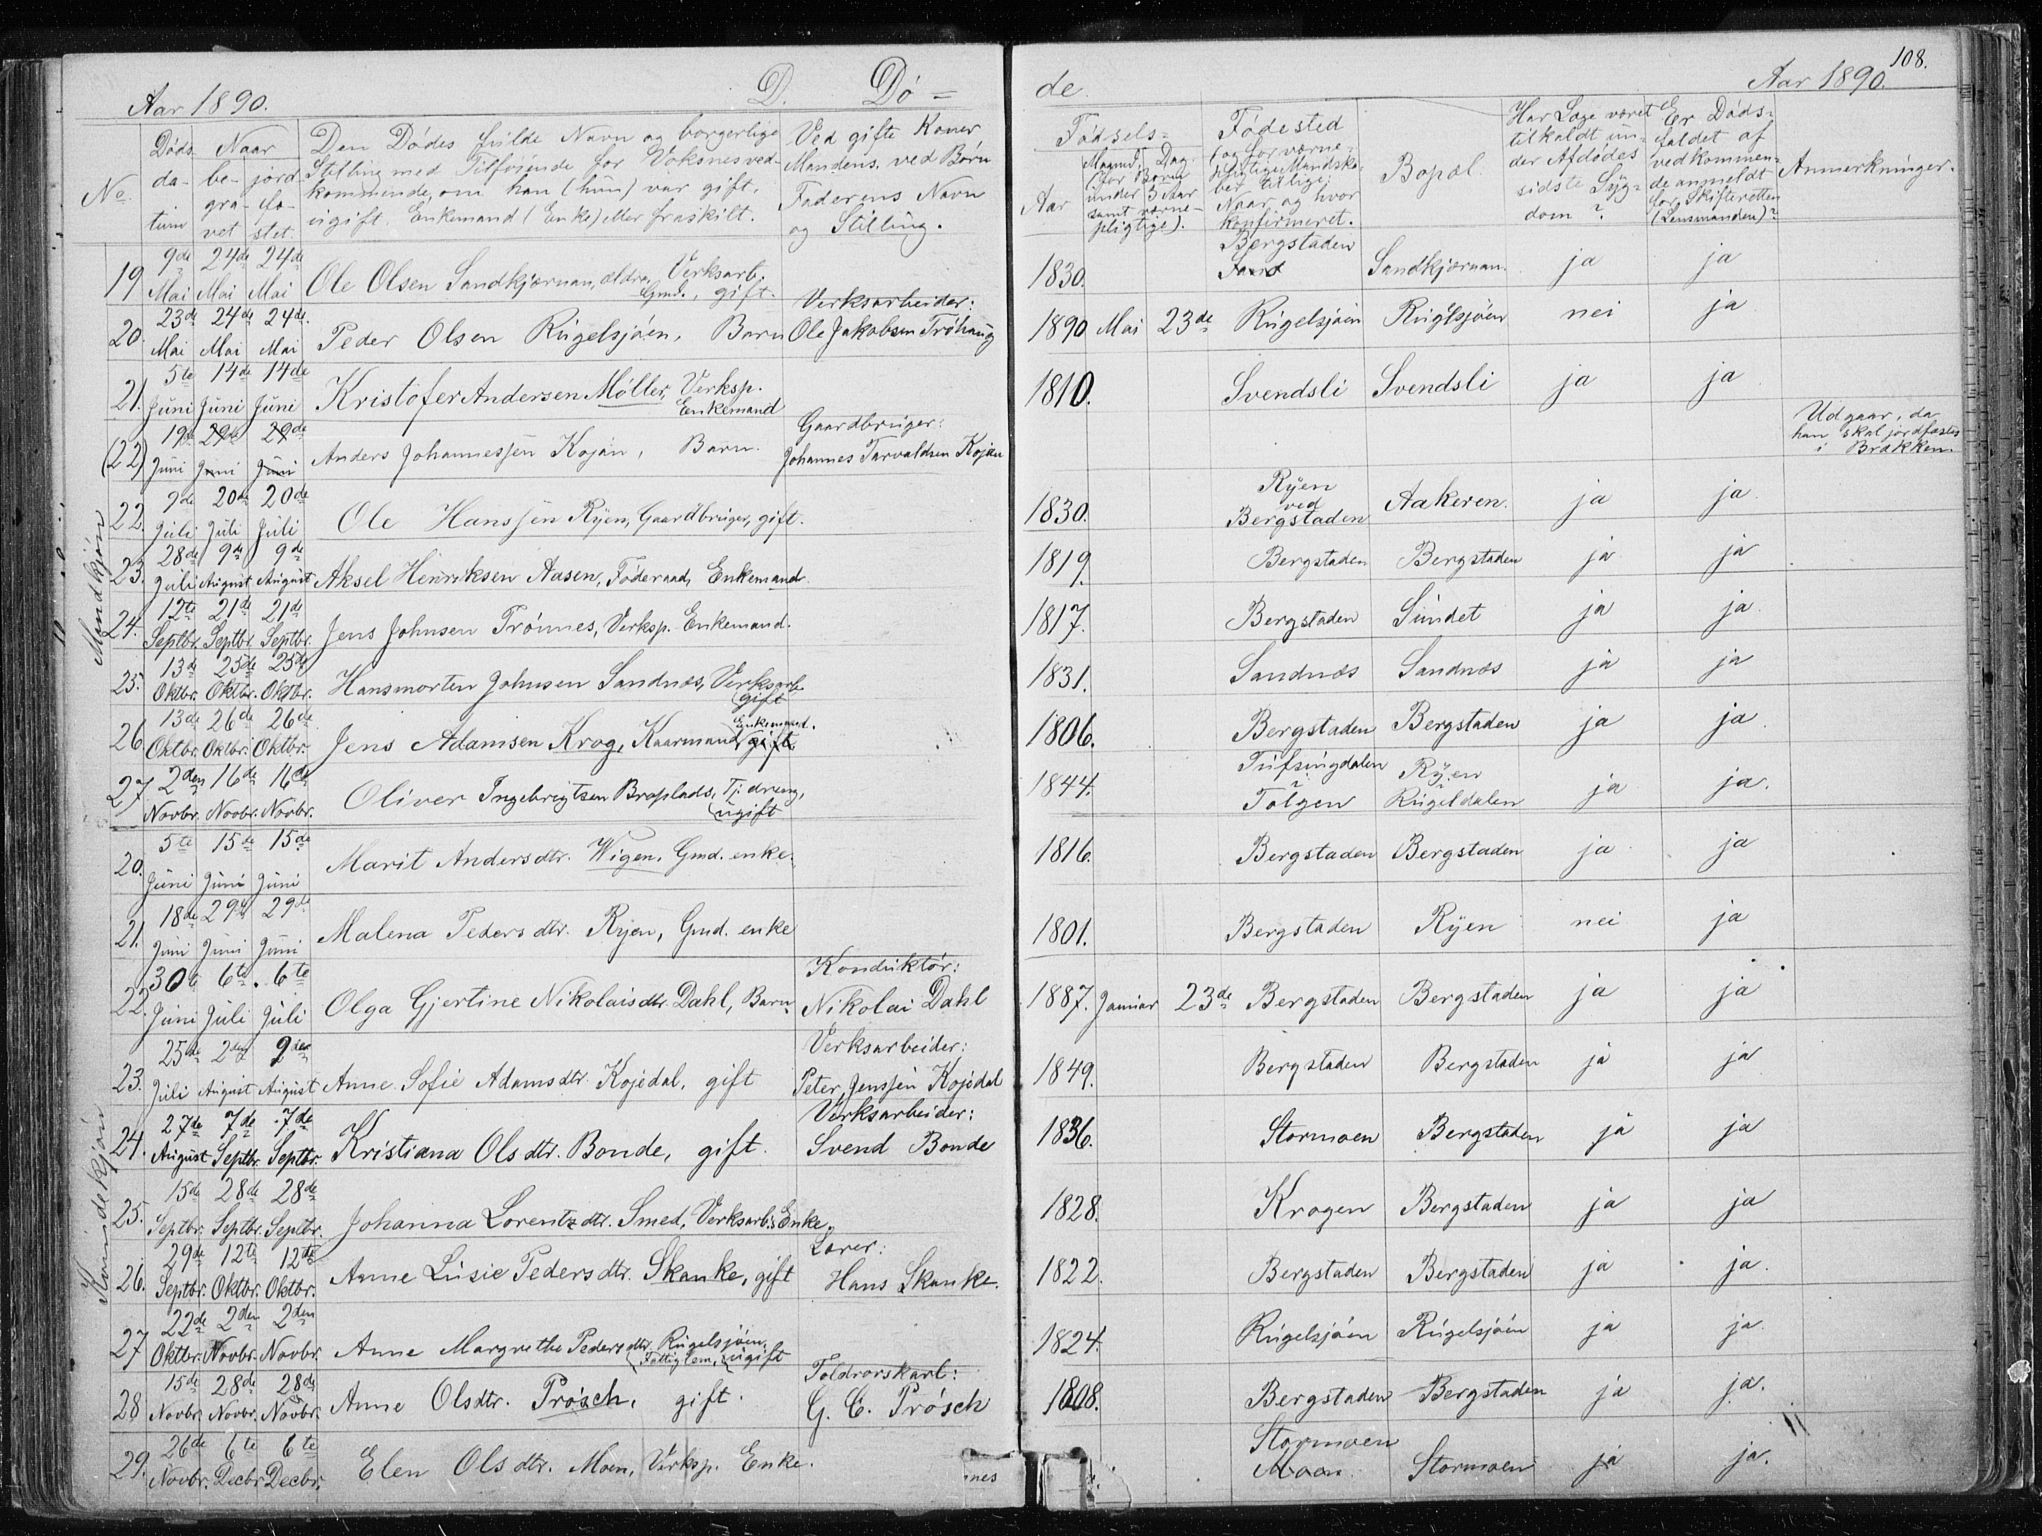 108.
Aar 1890. D. Dö = de. Aar 1890.
No
Döds-datum
Naar
be-gra-vet
jord-fæ-stet.
Den Dödes fulde Navn og borgerlige
Stilling med Tilföiende for Voksnes ved-
kommende, om han (hun) var gift,
ugift, Enkemand (Enke) eller fraskilt.
Ved gifte Koner
Mandens, ved Börn
Faderens Navn
og Stilling.
Födsels=
Aar
Maaned, Dag
(for Börn
under 3 Aar
samt værne-
pligtige).
Födested
(og for værne-
pligtige Mandska-
ber tillige
Naar og hvor
konfirmeret.
Bopæl.
Har Læge været
tilkaldt un-
der Afdödes
sidste Syg-
dom?
Er Döds-
faldet af
vedkommen-
de anmeldt
for Skifteretten
(Lensmanden)?
Anmerkninger.
Mandkjön
19. 9de Mai 24de Mai 24de Mai Ole Olsen Sandkjernan, ældre, Verksarb. Gmd., gift. 1830. Bergstaden Sandkjernan. ja ja
20. 23de Mai 24de Mai 24de Mai Peder Olsen Rugelsjöen, Barn Verksarbeider: Ole Jakobsen Tröhaug 1890 Mai 23de Rugelsjöen Ruglsjöen nei ja
21. 5te Juni 14de Juni 14de Juni Kristofer Andersen Möller, Verksp. Enkemand 1810. Svendsli Svendsli ja ja
(22) 19de Juni 29de Juni 29de Juni Anders Johannessen Kojan, Barn. Gaardbruger: Johannes Tarvaldsen Kojan Udgaar, da han skal jordfæstes i Brækken.
22. 9de Juli 20de Juli 20de Juli Ole Hanssen Ryen, Gaardbruger, gift. 1830. Ryen ved Bergstaden Aakeren. ja ja.
23. 28de Juli 9de August 9de August Aksel Henriksen Aasen, Föderaad, Enkemand. 1819. Bergstaden Bergstaden ja ja
24. 12te Septbr. 21de Septbr. 21de Septbr. Jens Johnsen Trönnes, Verksp. Enkemand. 1817. Bergstaden Sundet ja ja.
25. 13de Oktbr. 25de Oktbr. 25de Oktbr. Hansmorten Johnsen Sandnæs, Verksarb. gift 1831. Sandnæs Sandnæs ja ja
26. 13de Oktbr. 26de Oktbr. 26de Oktbr. Jens Adamsen Krog, Kaarmand, gift. Enkemand. 1806. Bergstaden Bergstaden ja ja.
27. 2den Novbr. 16de Novbr. 16de Novbr. Oliver Ingebrigtsen Braplads, Tj.dreng, ugift 1844. Tufsingdalen i Tolgen Ryen i Rugeldalen ja ja.
Kvindekjön
20. 5te Juni 15de Juni 15de Juni Marit Andersdtr. Wigen, Gmd. enke. 1816. Bergstaden Bergstaden ja ja
21. 18de Juni 29de Juni 29de Juni Malena Pedersdtr. Ryen, Gmd. enke 1801. Bergstaden Ryen nei ja
22. 30te Juni 6te Juli 6te Juli Olga Gjertine Nikolaisdtr. Dahl, Barn Konduktör: Nikolai Dahl 1887. Januar 23de Bergstaden Bergstaden ja ja
23. 25de Juli 2den August 9den August Anne Sofie Adamsdtr. Kojedal, gift Verksarbeider: Peter Jenssen Kojedal 1849. Bergstaden Bergstaden ja ja
24. 27de August 7de Septbr. 7de Septbr. Kristiana Olsdtr. Bonde, gift. Verksarbeider: Svend Bonde 1836. Stormoen Bergstaden ja ja
25. 15de Septbr. 28de Septbr. 28de Septbr. Johanna Lorentzdtr. Smed, Verksarb.s Enke. 1828. Krogen Bergstaden ja ja
26. 29de Septbr. 12te Oktbr. 12te Oktbr. Anne Lusie Pedersdtr. Skanke, gift Lærer: Hans Skanke. 1822. Bergstaden Bergstaden ja ja.
27 22de Oktbr. 2den Novbr. 2den Novbr. Anne Margrethe Pedersdtr. Rugelsjöen, Fattiglem, ugift 1824. Rugelsjöen Rugelsjöen ja ja.
28 15de Novbr. 28de Novbr. 28de Novbr. Anne Olsdtr. Prösch, gift. Toldrorskarl: G. C. Prösch 1808. Bergstaden Bergstaden ja ja.
29. 26de Novbr. 6te Decbr. 6te Decbr. Elen Olsdtr. Moen, Verksp. Enke. Stormoen Moen. Stormoen ja ja.